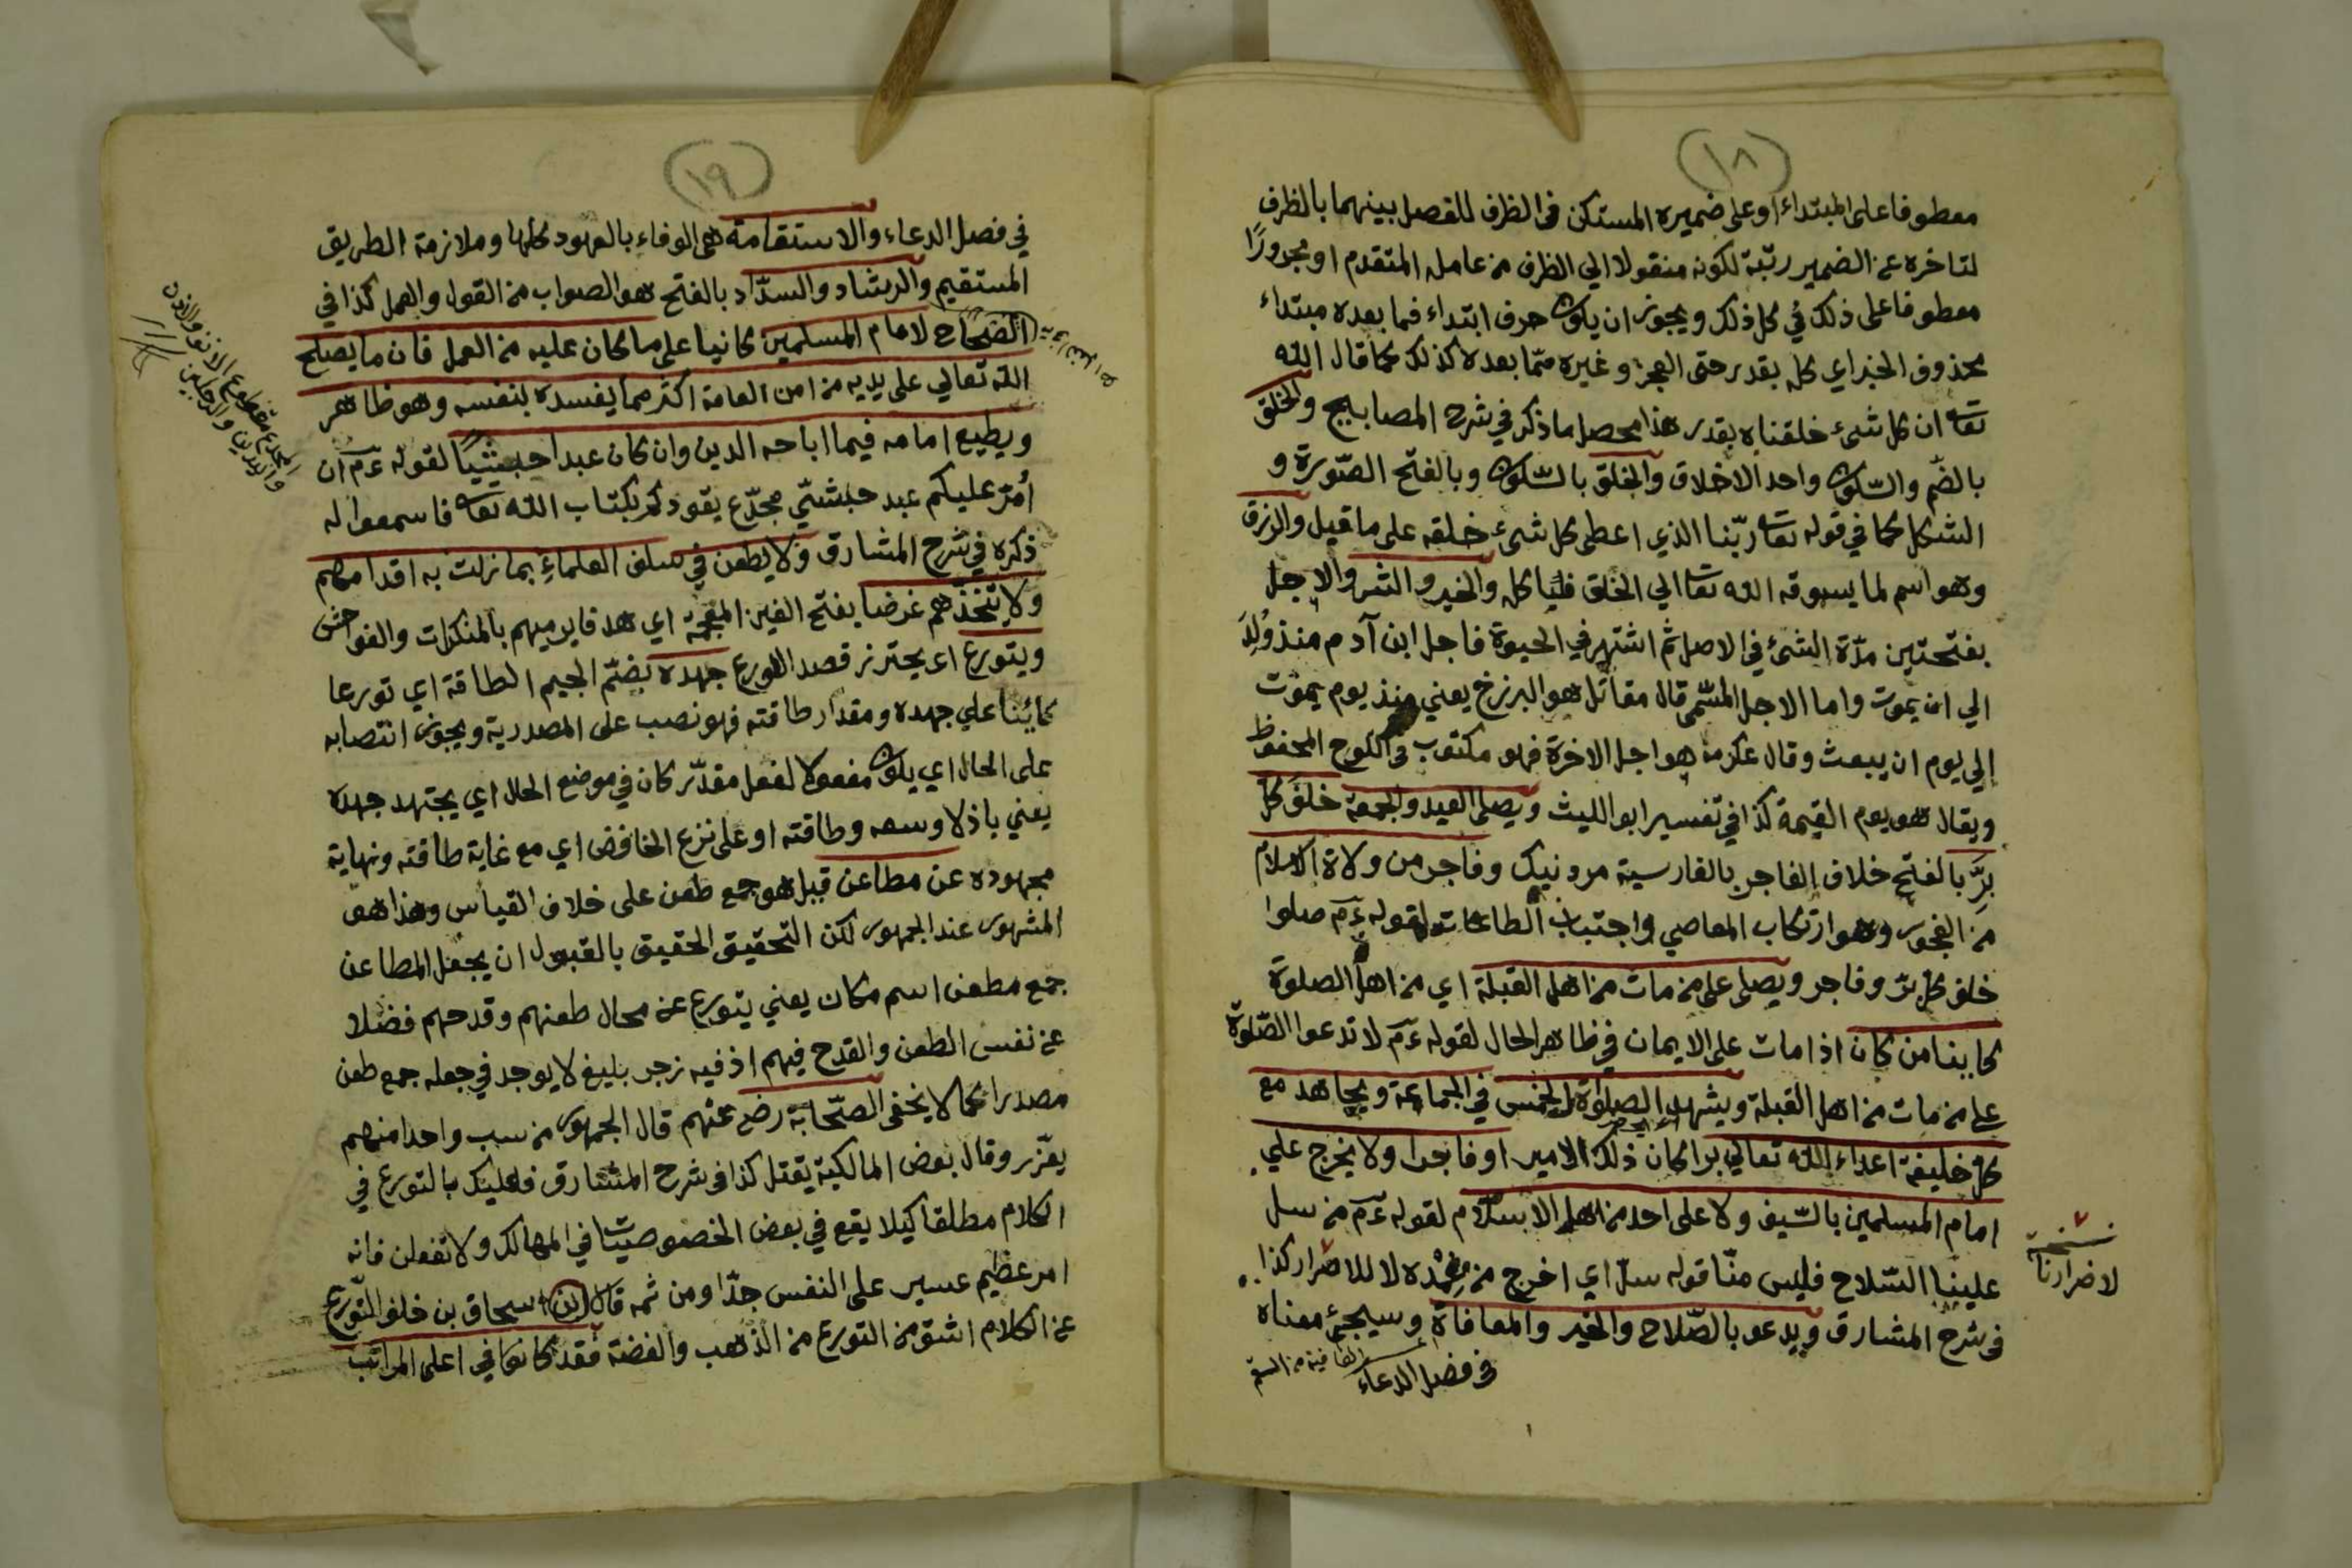 (١٨)
معطوفا على المبتداء او على ضميره المستكن فى الظرف للفصل بينهما بالظرف
لتاخره عن الضمير رتبة لكونه منقولا الي الظرف من عامله المتقدم او مجرورًا
معطوفا على ذلك ئي كل ذلك ويجوز ان يكون حرف ابتداء فما بعده مبتداء
محذوف الخبر اي كله بقدر حتى العجز وغيره ممّا بعده كذلك كما قال الله
تعا ان كل شئ خلقناه بقدر هذا محصل ما ذكر في شرح المصابيح والخلق
بالضّم والسّكون واحد الاخلاق والخلق بالسّكون وبالفتح الصّورة و
الشكل كما في قوله تعا ربّنا الذي اعطى كل شئ خلقه على ما قيل والرزق
وهو اسم لما يسوقه الله تعا الي الخلق فياكله والخير والشر والاجل
بفتحتين مدّة الشئ في الاصل ثم اشتهر في الحيوة فاجل ابن آدم منذ وُلِدَ
الي ان يموت واما الاجل المسّمى قال مقاتل هو البرزخ يعني منذ يوم يموت
إلي يوم ان يبعث وقال عكرمه هو اجل الاخرة فهو مكتوب فى اللوح المحفوظ
ويقال هو يوم القيمة كذا في تفسير ابو الليث ويصلى العيد والجمعة خلف كل
برّ بالفتح خلاف الفاجر بالفارسية مرد نيك وفاجر من ولاة الاسلام
من الفجور وهو ارتكاب المعاصي واجتباب الطاعات لقوله ءم صلوا
خلف كل برّ وفاجر ويصلى على من مات من اهل القبلة اي من اهل الصلوة
كاينا من كان اذا مات على الايمان في ظاهر الحال لقوله ءم لا تدعوا الصّلوة
على من مات من اهل القبلة ويشهد الصلوة الخمس في الجماعة ويجاهد مع
كل خليفة اعداء الله تعالي برا كان ذلك الامير او فاجرا ولا يخرج علي
امام المسلمين بالسّيف ولا على احد من اهل الاسلام لقوله ءم من سل
علينا السّلاح فليس منّا قوله سلّ اي اخرج من غمده لا للاضرار كذا
فى شرح المشارق ويدعو بالصّلاح والخير والمعافاة وسيجئ معناه
فى فضل الدعاء
نسخة
لاضرارنا
(١٩)
في فصل الدعاء والاستقامة هى الوفاء بالعهود كلها وملازمة الطريق
المستقيم والرشاد والسدّاد بالفتح هو الصواب من القول والعمل كذا في
الصّحاح لامام المسلمين كانيا على ما كان عليه من العمل فان ما يصلح
الله تعالي على يديه من امن العامة اكثر مما يفسده بنفسه وهو ظاهر
ويطيع امامه فيما اباحه الدين وان كان عبدا حبشيًا لقوله ءم ان
أُمّر عليكم عبد حبشيّ مجدّع يقودكم بكتاب الله تعا فاسمعوا له
ذكره في شرح المشارق ولا يطعن في سلف العلماء بما زلت به اقدامهم
ولا يتّخذهم غرضا بفتح الغين المعجمة اي هدفا يرميهم بالمنكرات والفواحش
ويتورع اى يحترز قصد الورع جهده بضّم الجيم الطاقة اي تورعا
كائنا علي جهده ومقدار طاقته فهو نصب على المصدرية ويجوز انتصابه
على الحال اي يكون مفعولا لفعل مقدّر كان في موضع الحال اي يجتهد جهده
يعني باذلا وسعه وطاقته او على نزع الخافض اي مع غاية طاقته ونهاية
مجهوده عن مطاعن قيل هو جمع طعن على خلاف القياس وهذا هو
المشهور عند الجمهور لكن التحقيق الحقيق بالقبول ان يجعل المطاعن
جمع مطعن اسم مكان يعني يتورع عن محال طعنهم وقدحهم فضلا
عن نفس الطعن والقدح فيهم اذ فيه زجر بليغ لا يوجد في جعله جمع طعن
مصدرا كما لا يخفى الصّحابة رضع عنهم قال الجمهور من سب واحدا منهم
يعّزر وقال بعض المالكية يقتل كذا فى شرح المشارق فاعليك بالتورع في
الكلام مطلقا كيلا يقع في بعض الخصوصيّات في المهالك ولا تفعلن فانه
امر عظيم عسير على النفس جدّا ومن ثمه قال ابن اسحاق بن خلف التّورع
عن الكلام اشق من التورع من الذهب والفضة فقد كانوا في اعلى المراتب
المجدع مقطوع الانف والاذن
واليدين والرجلين